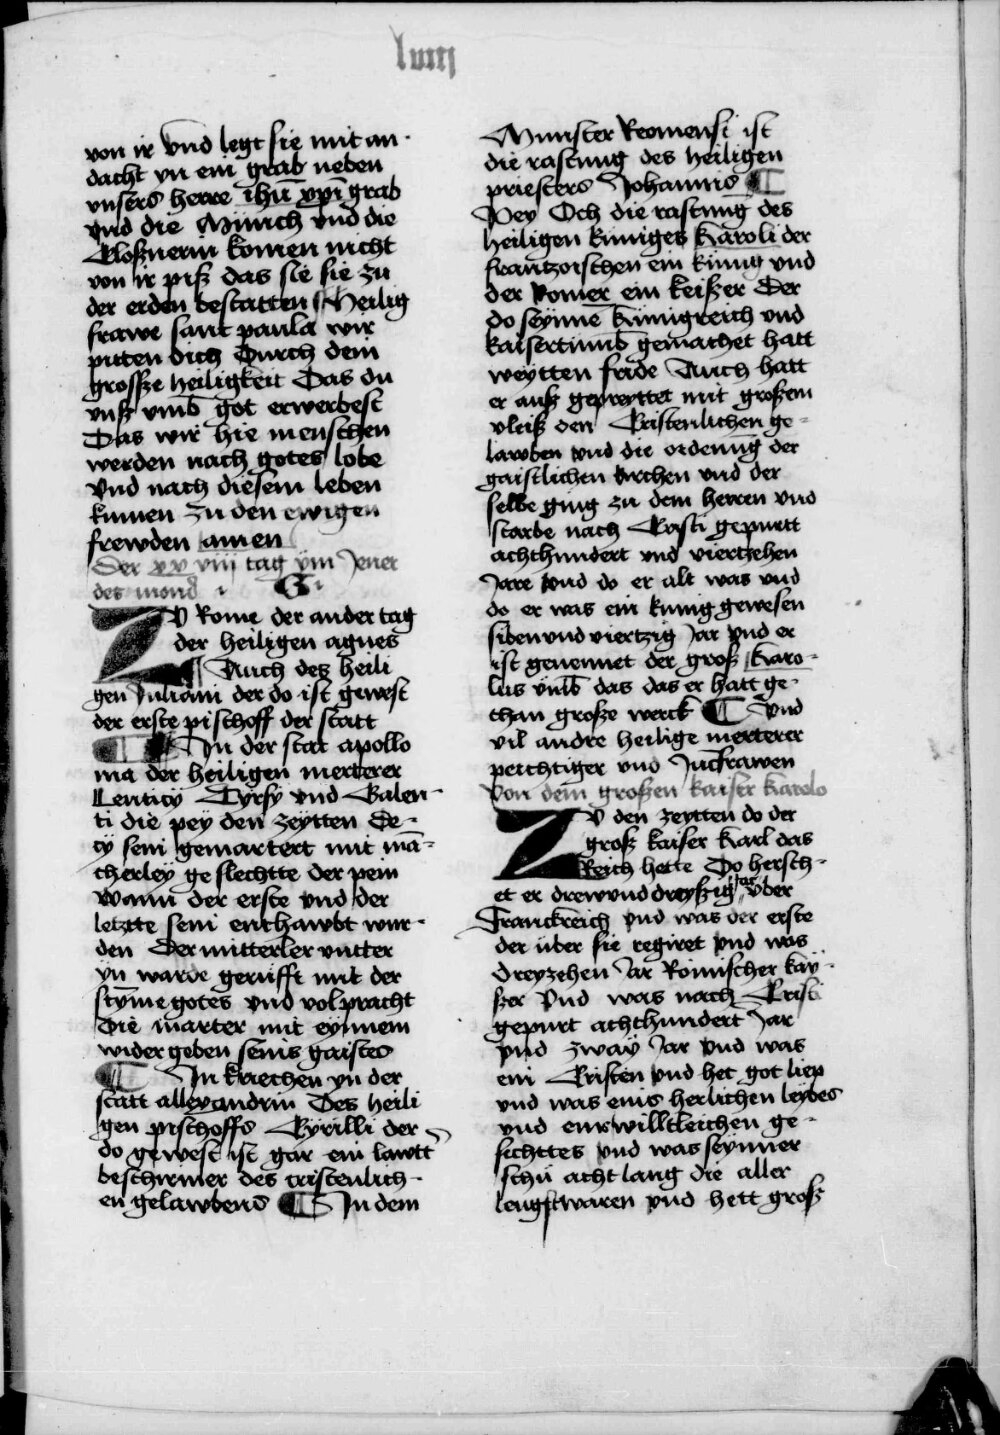 lviiij
von ir vnd legt sie mit an-
dacht yn ein grab neben
vnsers herre ihũ xpĩ grab
vnd die Münich vnd die
Cloßnerin komen nicht
von ir piß das sie sie zu
der erden bestatten Heilig
frawe sant paula wir
piten dich Durch dein
grossze heiligkeit Das du
vnß vmb got erwerbest
Das wir hie menschen
werden nach gotes lobe
vnd nach diesem leben
kumen zu den ewigen
frewden amen
Der xxviij tag ym Jener
des mond · G ·
ZV Rome der ander tag
der heiligen agnes
¶ Auch des heili
gen Juliani der do ist gewest
der erste pischoff der statt
¶ In der stat apollo
nia der heiligen merterer
Leuticy Tyrsy vnd Galen-
ti die pey den zeytten De-
cy sein gemartert mit mã-
cherley geslechtte der pein
Wann der erste vnd der
letzte sein enthawbt wur-
den Der mitterler vntter
yn warde gerufft mit der
stym̃e gotes vnd volpracht
die marter mit eynnem
wider geben seins gaistes
¶ In kriechen yn der
statt allexandrin Des heili
gen pischoffs Cyrilli der
do gewest ist gar ein lawtt
beschirmer des cristenlich-
en gelawbens ¶ In dem
Munster Reomensi ist
die rastung des heiligen
priesters Johannis ¶
Pey Och die rastung des
heiligen kuniges Karoli der
frantzoischen ein kunig vnd
der Romer ein keißer Der
do seynne kunigreich vnd
kaisertumb gemachet hatt
weytten fride Auch hatt
er auß gepreyttet mit großem
vleiß den Cristenlichen ge-
lawben vnd die ordenung der
gaistlichen kirchen vnd der
selbe ging zu dem herren vnd
starbe nach Cristi gepurtt
achthundert vnd viertzehen
Jare vnd do er alt was vnd
do er was ein kunig gewesen
siben vnd viertzig Jar vnd er
ist genennet der groß Karo-
lus vmb das das er hatt ge-
than große werck ¶ Vnd
vil andre heilige merterer
peichtiger vnd Juncfrawen
Von dem großen kaiser Karolo
ZV den zeytten do der
groß kaiser Karl das
Reich hette Do hersch-
et er drew vnd dreyßig jar vber
Franckreich vnd was der erste
der über sie regiret vnd was
dreyzehen Jar Römischer kay-
ßer Vnd was nach Cristi
gepurt achthundert Jar
vnd zway Jar vnd was
ein Cristen vnd het got liep
vnd was eins herlichen leybes
vnd eins willtleichen ge-
sichttes vnd was seynner
schu acht lang die aller
lengst waren vnd hett groß